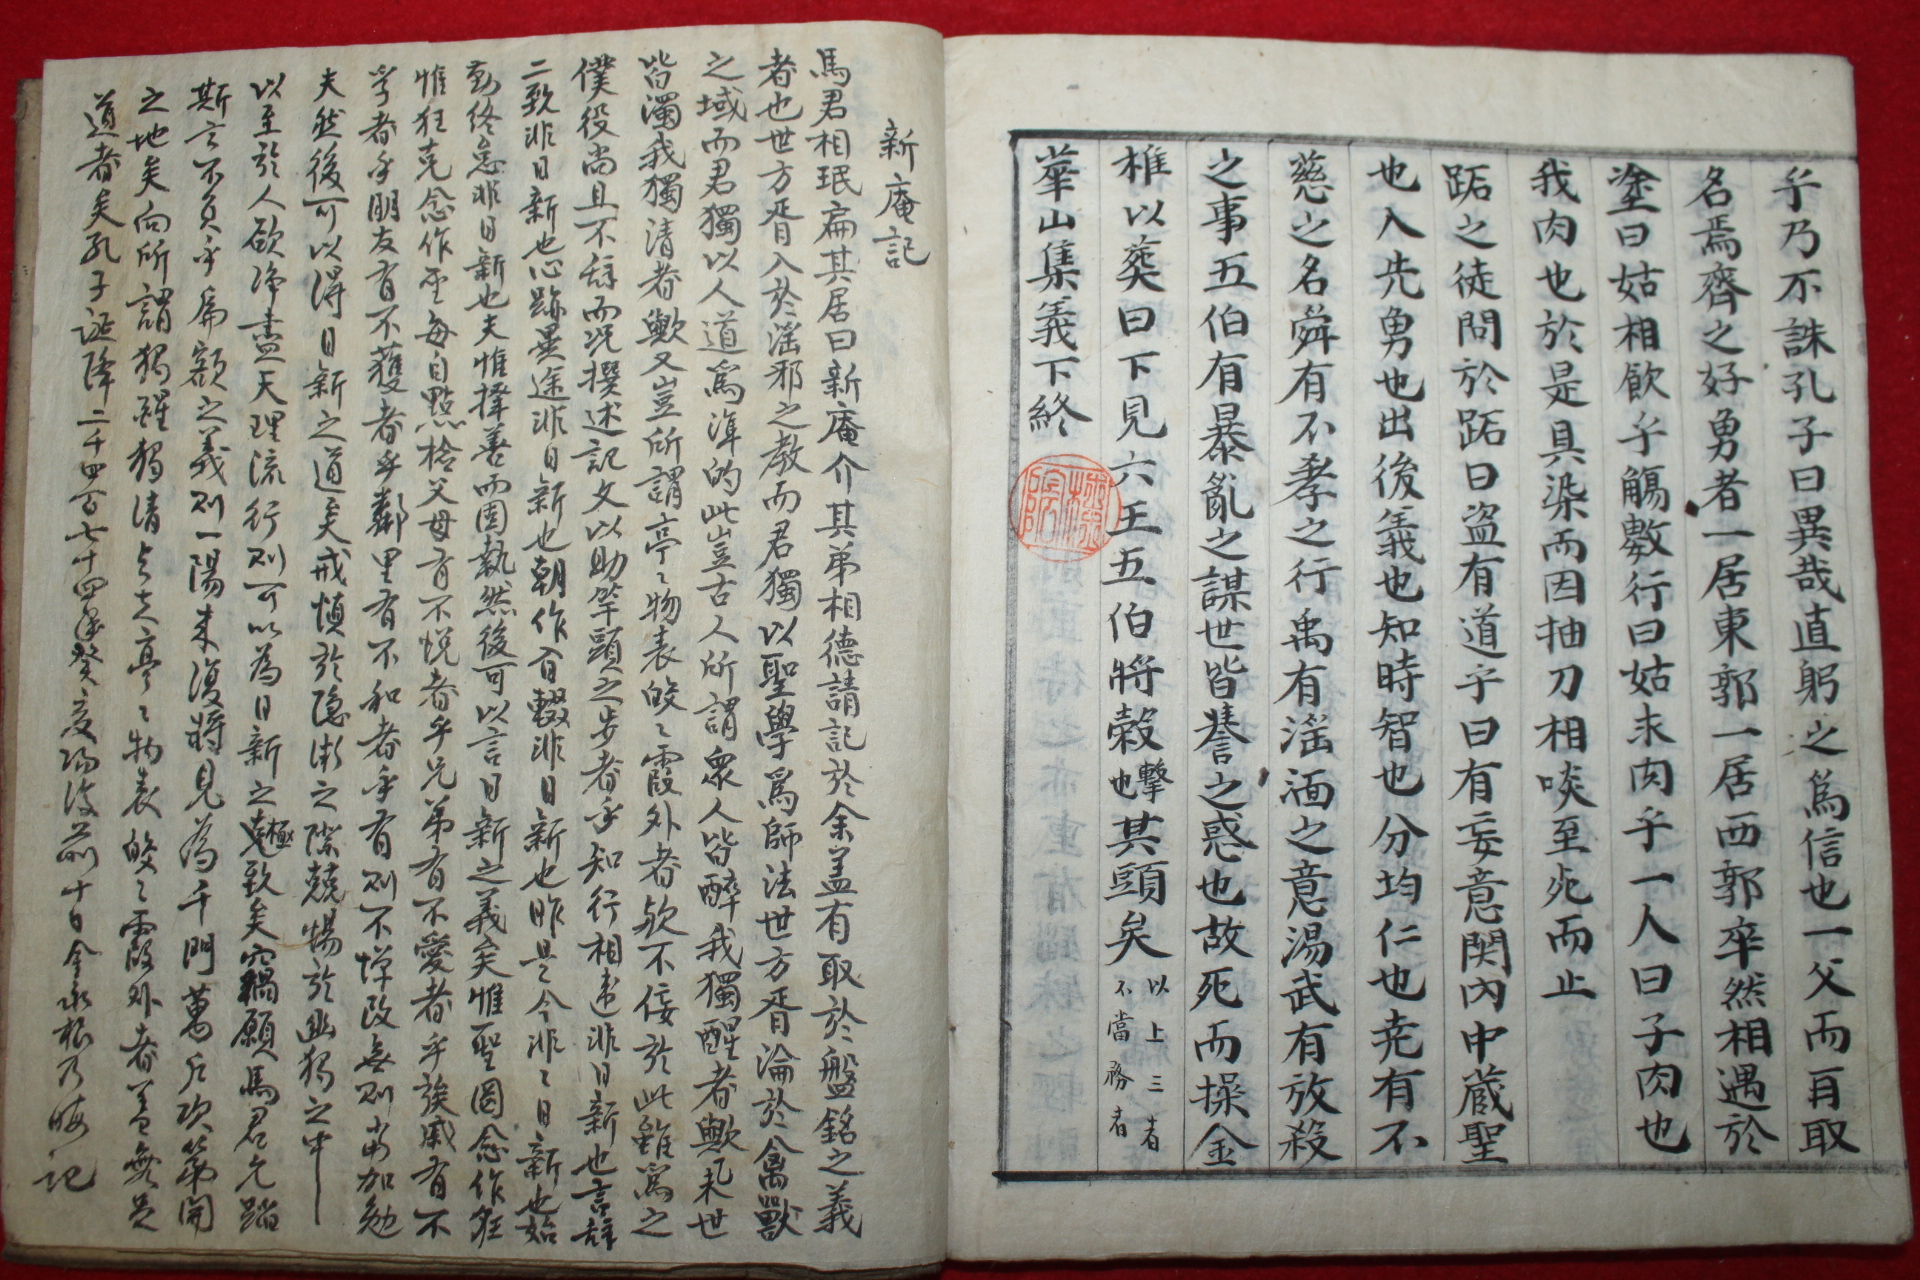 乎乃不誅孔子曰異哉直躬之爲信也一父而再取
名焉齊之好勇者一居東郭一居西郭卒然相遇於
塗曰姑相飮乎觴數行曰姑求肉乎一人曰子肉也
我肉也於是具染而因抽刀相啖至死而止
跖之徒問於跖曰盗有道乎曰有妄意関內中蔵聖
也入先勇也出後義也知時智也分均仁也尭有不
慈之名舜有不孝之行禹有滛湎之意湯武有放殺
之事五伯有暴亂之謀世皆誉之惑也故死而操金
椎以葬曰下見六王五伯將穀擊也其頭矣以上三者不當務者
華山集義下終
新庵記
馬君相珉扁其居曰新庵介其弟相德請記於余盖有取於盤銘之義
者也世方胥入於滛邪之敎而君獨以聖學爲師法世方胥淪於禽獸
之域而君獨以人道爲準的此豈古人所謂衆人皆醉我獨醒者歟擧世
皆濁我獨清者歟又豈所謂亭〻物表皎〻霞外者歟不侫於此雖爲之
僕役尚且不辞而况撰述記文以助竿頭之步者乎知行相違非日新也言辞
二致非日新也心跡異途非日新也朝作夕輟非日新也昨是今非〻日新也始
勤終怠非日新也夫惟擇善而固執然後可以言日新之義矣惟聖罔念作狂
惟狂克念作聖每自點檢父母有不悅者乎兄弟有不愛者乎族戚有不
孚者乎朋友有不獲者乎鄰里有不和者乎有則不憚改無則尤加勉
夫然後可以得日新之道矣戒愼於隱微之際兢惕於幽獨之中
以至於人欲净盡天理流行則可以為日新之極致矣竊願馬君允蹈
斯言不負乎扁額之義則一陽来復將見為千門萬户次第開
之地矣向所謂獨醒獨清与夫亭〻物表皎〻霞外者盖無足
道者矣孔子誕降二千四百七十四年癸亥陽復前十日金永根乃晦記